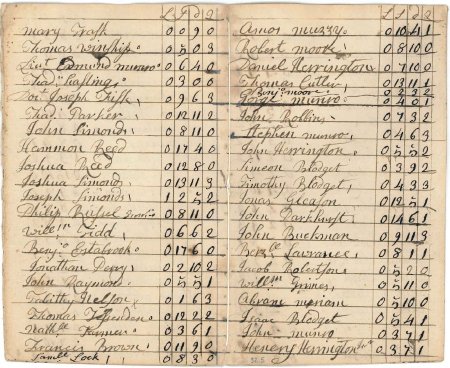 L S d q
mary Trask 0 0 9 0
Thomas winship 0 5 0 3
Lieut Edmund munro 0 6 4 0
Thad.s Hasting 0 3 0 0
Joseph Fisk 0 9 6 3
Thad.s Parker 0 12 11 2
John Simonds 0 8 11 0
Hammon Reed 0 17 4 0
Joshua Reed 0 12 8 0
Joshua Simonds 0 13 11 3
Joseph Simonds 1 2 5 2
Philip Rusel 0 8 11 0
will.m Tidd 0 6 6 2
Benj.n Estabrook 0 17 6 0
Jonathan Perry 0 2 10 2
John Raymond 0 5 5 1
Tabitha Nelson 0 1 6 3
Thomas Fessenden 0 12 2 2
Nath.ll Farmer 0 3 6 1
Francis Brown 0 11 9 0
Sam.ll Lock 0 8 3 0
L S d q
Amos muzzy 0 10 4 1
Robert moore 0 8 10 0
Daniel Herrington 0 7 10 0
Thomas Cutler 0 13 11 1
Benj.n moore 0 2 3 2
munro 0 4 0 1
John Rollins 0 7 3 2
Stephen munro 0 4 6 3
John Herrington 0 5 5 2
Simeon Blodget 0 3 9 2
Timothy Blodget 0 4 3 3
Jonas Gleason 0 12 5 1
John Parkhust 0 14 6 1
John Buckman 0 9 11 3
Lawrance 0 8 11 1
Jacob Robertson 0 5 2 0
will.m Grimes 0 5 11 0
Abram meriam 0 5 10 0
Isaac Blodget 0 5 4 1
John munro 0 3 7 1
Henery Herrington 0 3 7 1